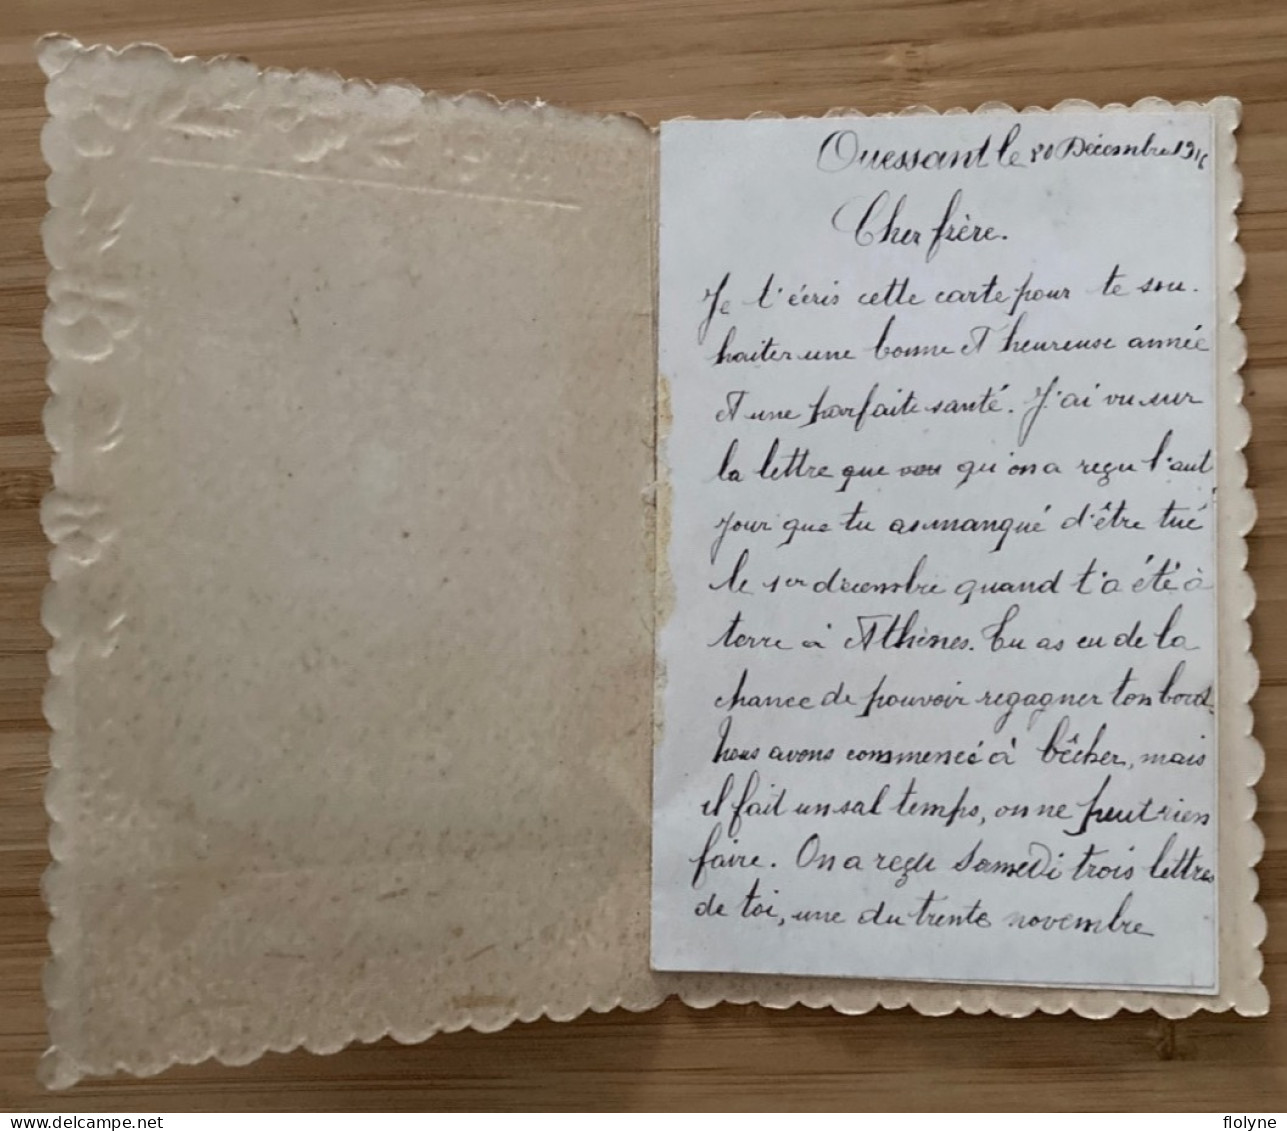 Ouessant le 20 Décembre 1916
Cher frère.
Je t'écris cette carte pour te sou-
haiter une bonne et heureuse année
et une parfaite santé. J'ai vu sur
la lettre que qu'on a reçu l'aut
jour que tu as manqué d'être tué
le 1er décembre quand t'a été à
terre à Athènes. Tu as eu de la
chance de pouvoir regagner ton bord.
Nous avons commencé à bêcher, mais
il fait un sal temps, on ne peut rien
faire. On a reçu Samedi trois lettres
de toi, une du trente novembre
flolyne